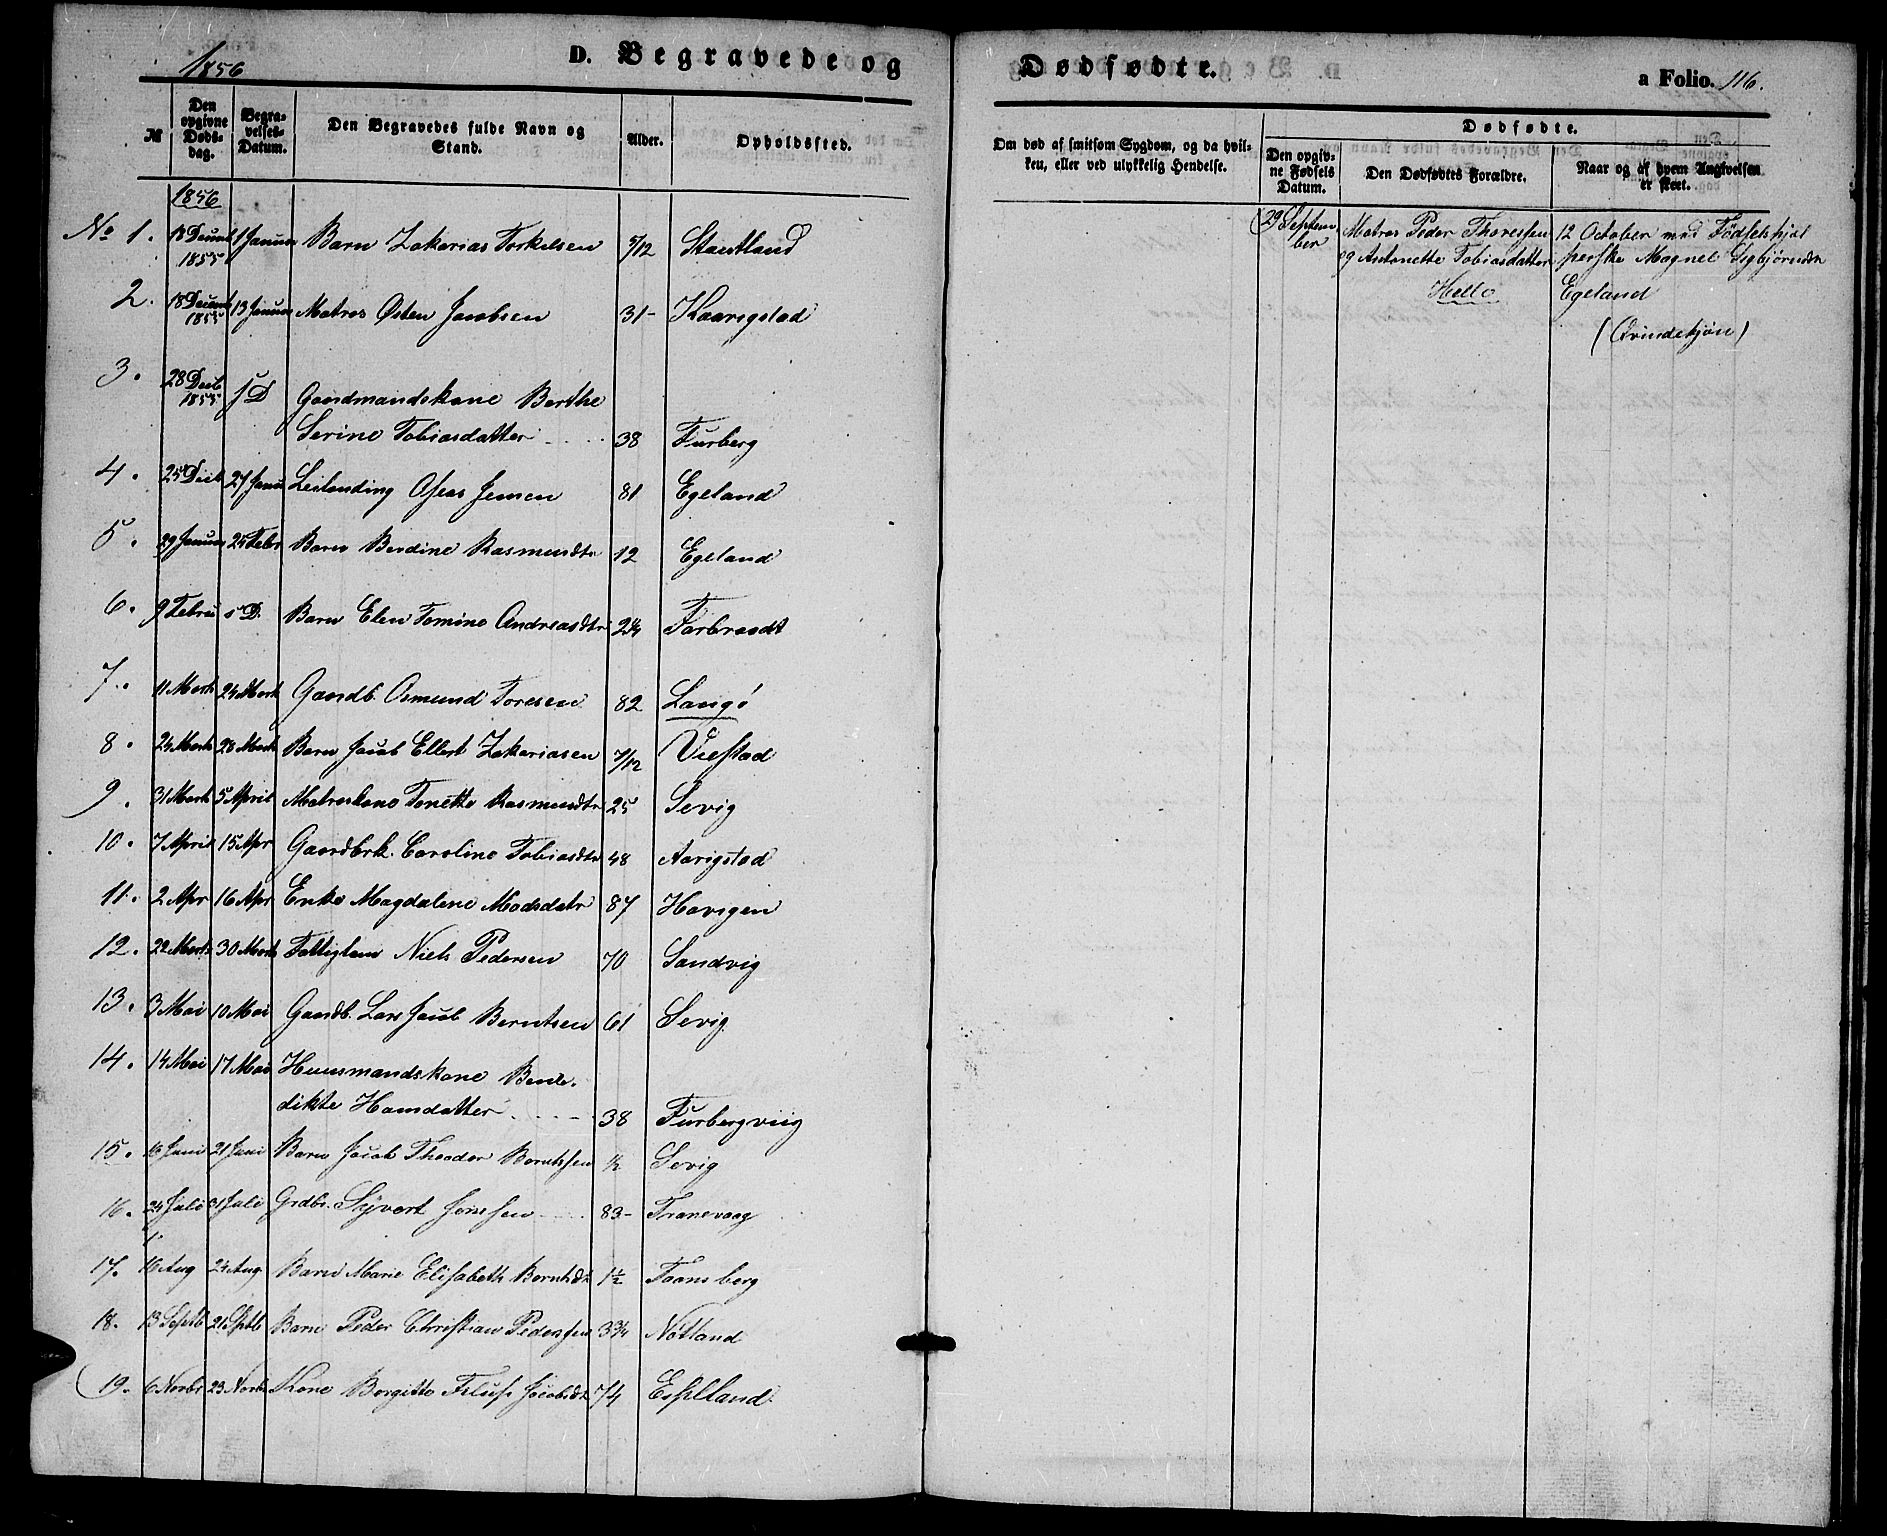 1856
D. Begravede og Dødfødte.
a Folio. 116.
№
Den opgivne Døds-dag.
Begra-velses-Datum.
Den Begravedes fulde Navn og Stand.
Alder.
Opholdssted.
Om død af smitsom Sygdom, og da hvil-
ken, eller ved ulykkelig Hendelse.
Dødfødte.
Den opgiv-ne Fødsels Datum.
Den Dødfødtes Forældre.
Naar og af hvem Angivelsen er skeet.
1856
No 1. 18 Decmb 1855 1 Januar Barn Zakarias Torkelsen 5/12 Stautland
2. 18 Decemb 1855 13 Januar Matros Østen Jacobsen 31- Kaarigstad
3. 28 Decb 1855 s D Gaardmandskone Berthe
Serine Tobiasdatter 38 Furberg
4. 25 Decb 27 Janu Leilending Oseas Jensen 81 Egeland
5. 29 Januar 24 Febr Barn Berdine Rasmusdtr 12 Egeland
6. 9 Febru s D. Barn Elen Tomine Andreasdtr 2¼ Farbrodt
7. 11 Marts 24 Marts Gaardb. Osmund Toresen 82 Langø
8. 24 Marts 28 Marts Barn Jacob Ellert Zakariasen 7/12 Viestad
9. 31 Marts 5 April Matroskone Tonette Rasmusdtr 25 Sevig
10. 7 April 15 Apr Gaardbrk. Caroline Tobiasdtr 48 Aarigstad
11. 2 Apr 16 Apr Enke Magdalene Madsdatr 87 Havigen
12. 22 Marts 30 Marts Fattiglem Niels Pedersen 70 Sandvig
13. 3 Mai 10 Mai Gaardb. Lars Jacob Berntsen 61 Sevig
14. 14 Mai 17 Mai Huusmandskone Bene-
dikte Hansdatter 38 Furbergviig
15. 16 Juni 21 Juni Barn Jacob Theodor Berntsen ½ Sevig
16. 24 Juli 31 Juli Grdbr. Syvert Jensen 83- Tranevaag
17. 16 Aug 24 Aug Barn Marie Elisabeth Berntsdt 1½ Faansberg
18. 13 Septb 21 Sptb Barn Peder Christian Pederssen 3¾ Nøtland
19. 6 Novbr 23 Novb Kone Borgitte Jacobsdt 74 Espelland
29 Septem-
ber
Matros Peder Thoressen
og Antonette Tobiasdatter
Helle
12 October med Fødselshjæl
perske Magnel Sigbjørnsdtr
Egeland
(Qvindekjøn)